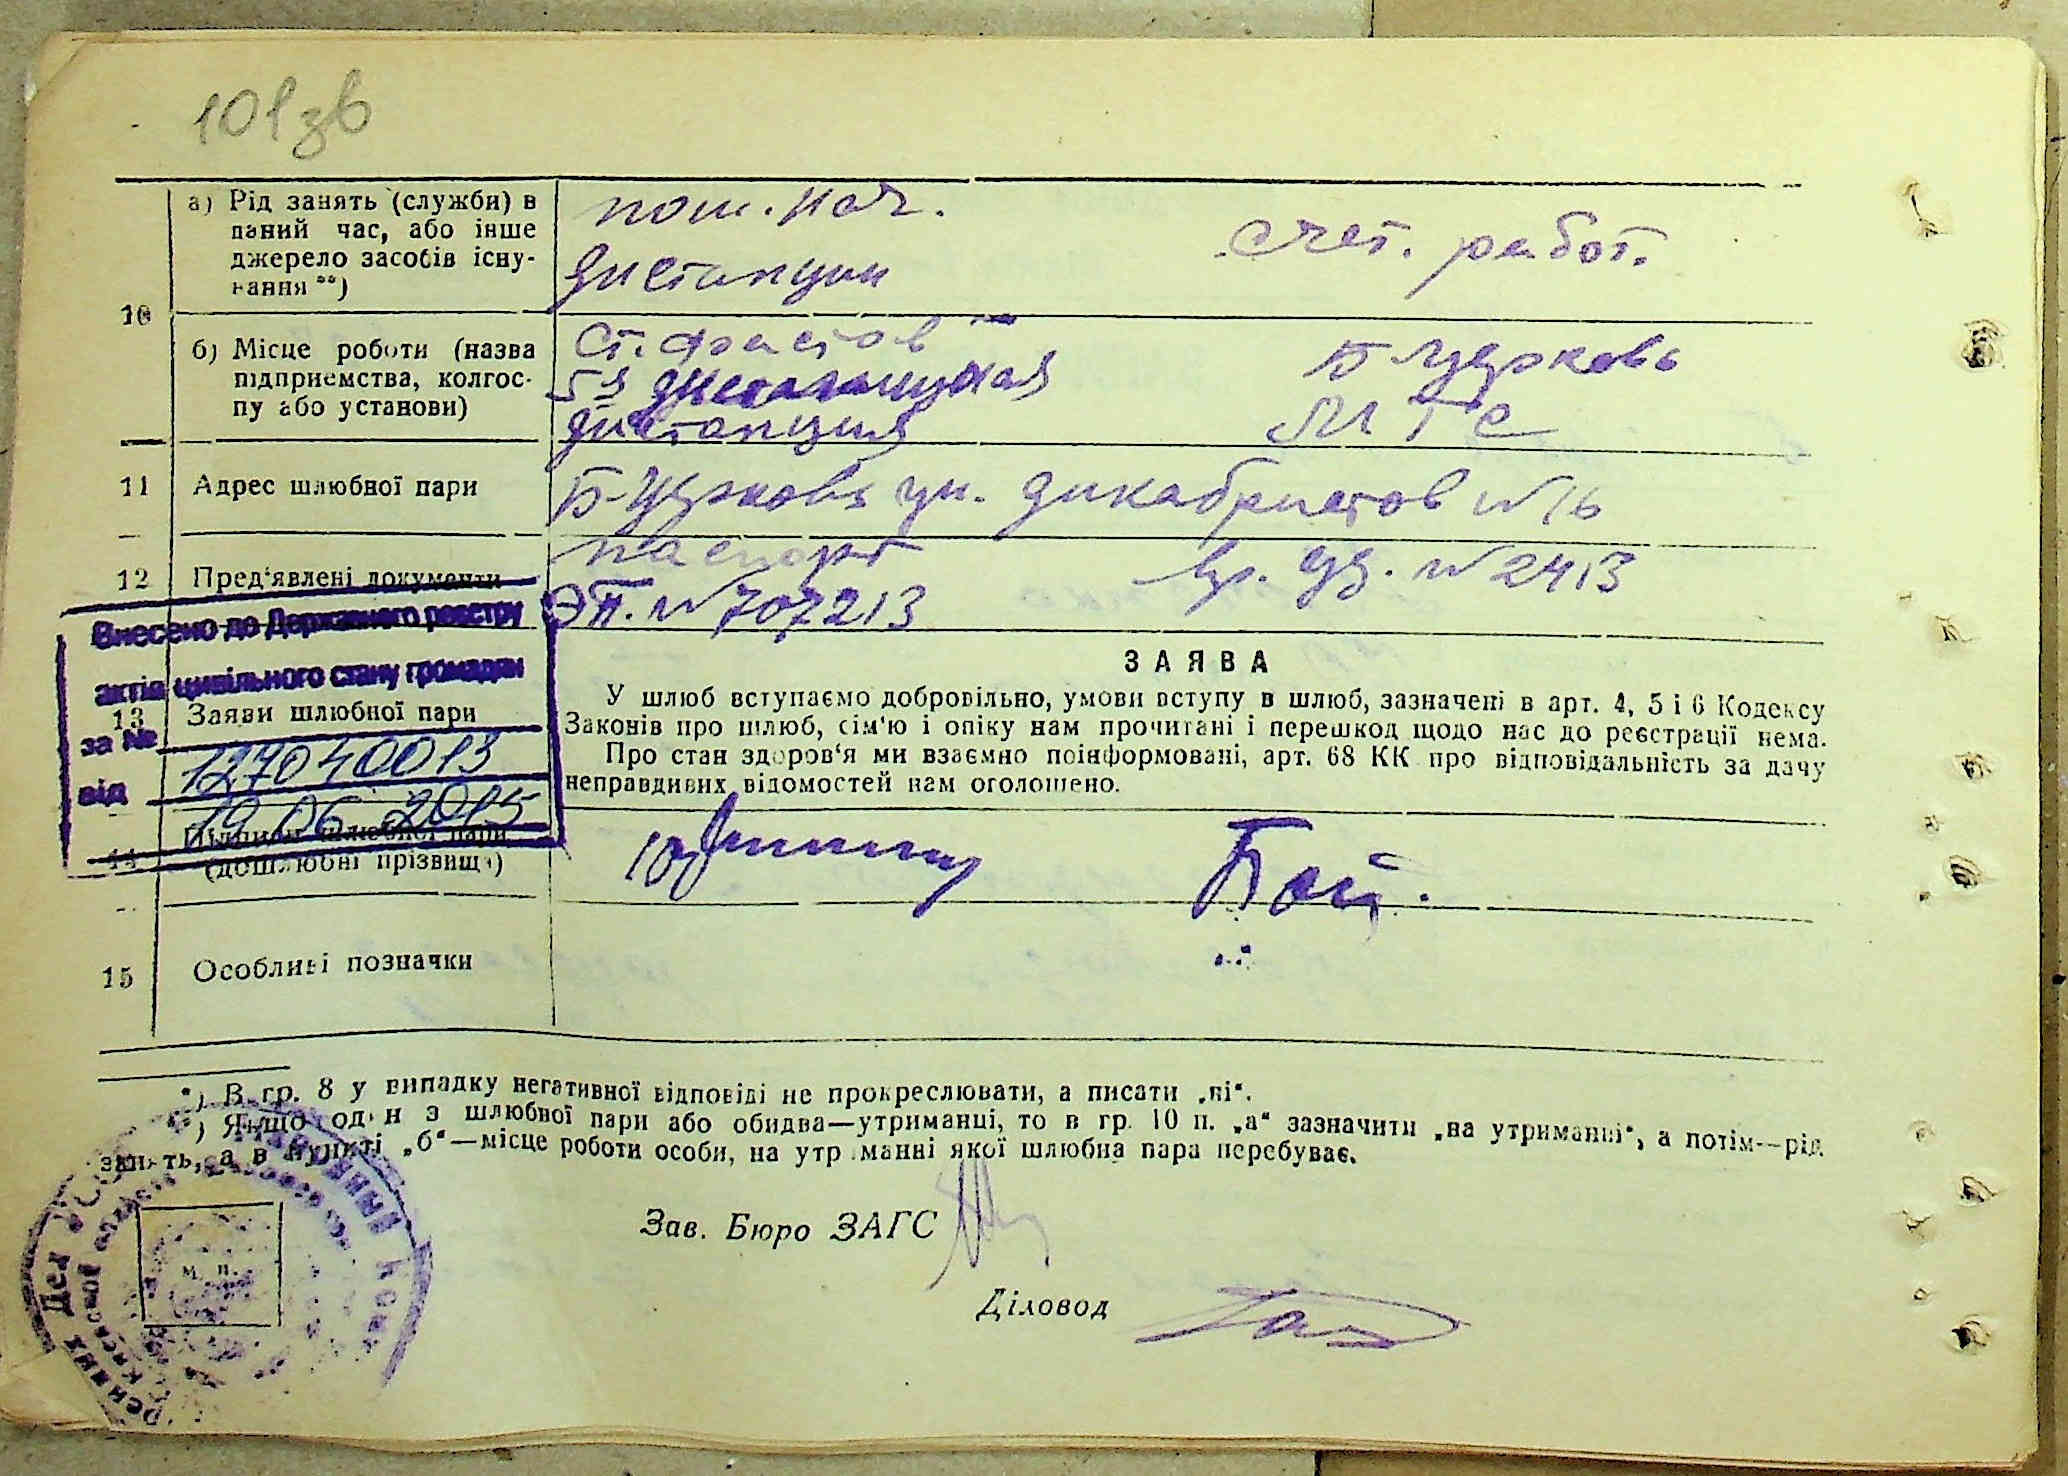 101зв
10
а) Рід занять (служби) в
даний час, або інше
джерело засобів існу-
вання **)
пом. нач.
дистанции
счет. работ.
б) Місце роботи (назва
підприємства, колгос-
пу або установи)
ст. Фастов
5я
дистанция
Б-Церковь
МТС
11 Адрес шлюбної пари
Б-Церковь ул. Дикабристов № 16
12 Пред'явлені документи
паспорт
ЭП. № 707213
вр. уд. № 2413
Внесено до Державного реєстру
актів цивільного стану громадян
за № 127040013
від 19.06.2015
13 Заяви шлюбної пари
ЗАЯВА
У шлюб вступаємо добровільно, умови вступу в шлюб, зазначені в арт. 4, 5 і 6 Кодексу
Законів про шлюб, сім'ю і опіку нам прочитані і перешкод щодо нас до реєстрації нема.
Про стан здоров'я ми взаємно поінформовані, арт. 68 КК про відповідальність за дачу
неправдивих відомостей нам оголошено.
14 Підписи шлюбної пари
(дошлюбні прізвища)
15 Особливі позначки
*) В гр. 8 у випадку негативної відповіді не прокреслювати, а писати „ні“.
) Якщо один з шлюбної пари або обидва—утриманці, то в гр. 10 п. „а“ зазначити „на утриманні“, а потім—рід
занять, а в пункті „б“—місце роботи особи, на утриманні якої шлюбна пара перебуває.
Зав. Бюро ЗАГС
м. п.
Діловод